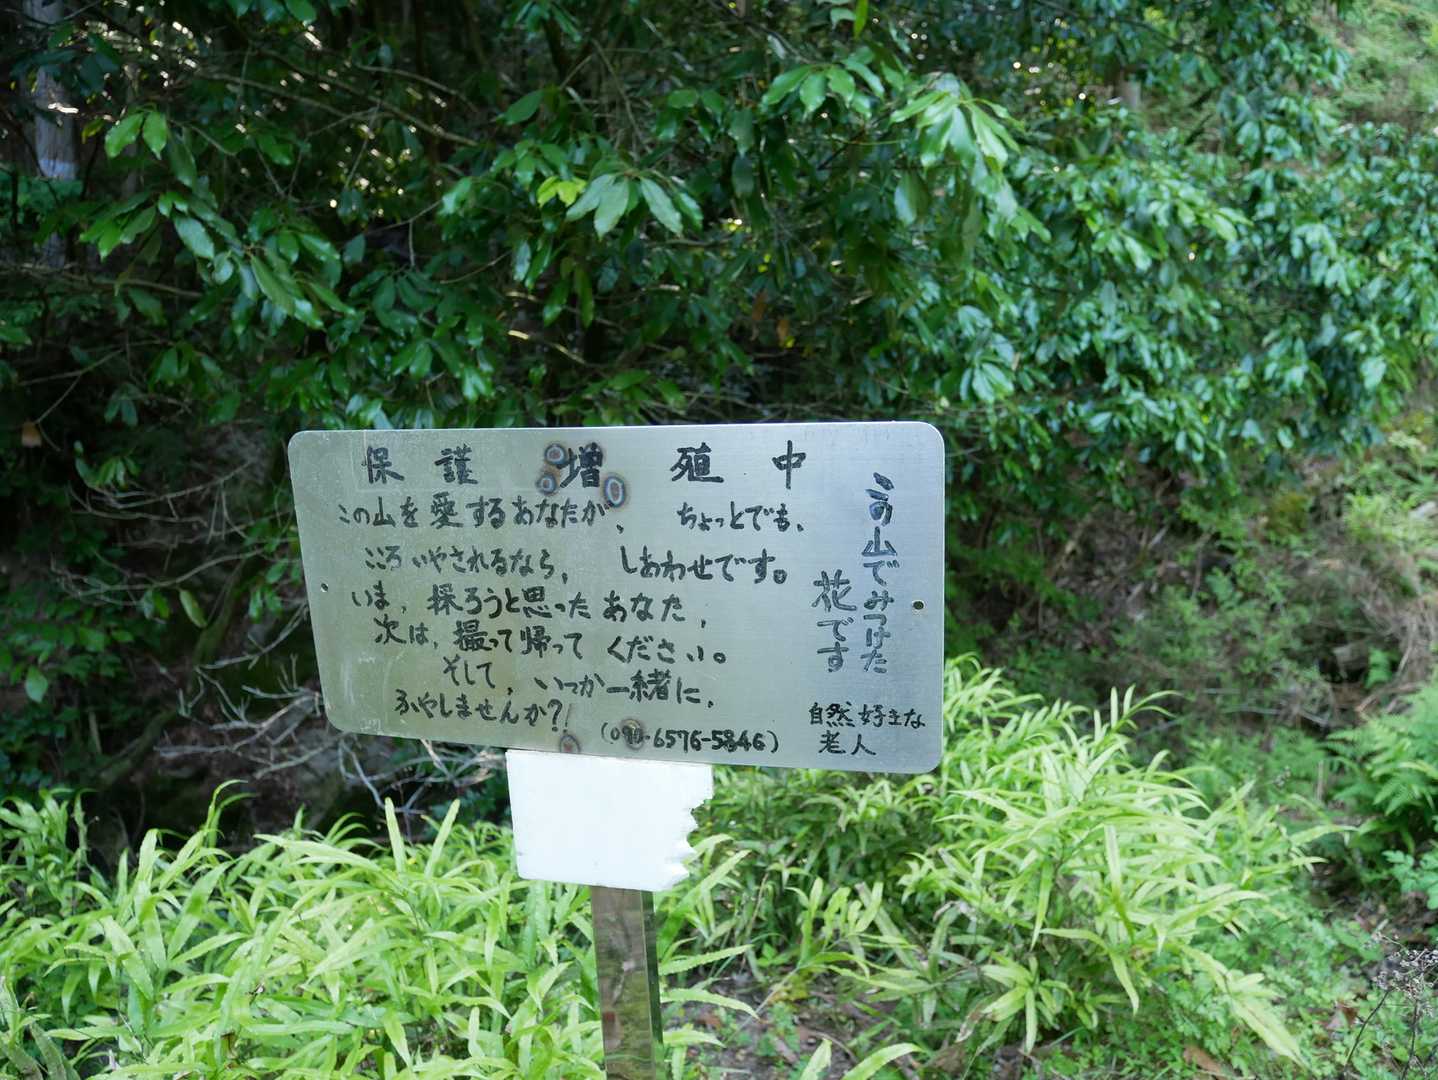 保護増殖中
この山を愛するあなたが、ちょっとでも、
こころいやされるなら、しあわせです。
いま、採ろうと思ったあなた、
次は、撮って帰ってください。
そして、いつか一緒に、
ふやしませんか?!
(090-6576-5846)
この山でみつけた
花です
自然好きな
老人